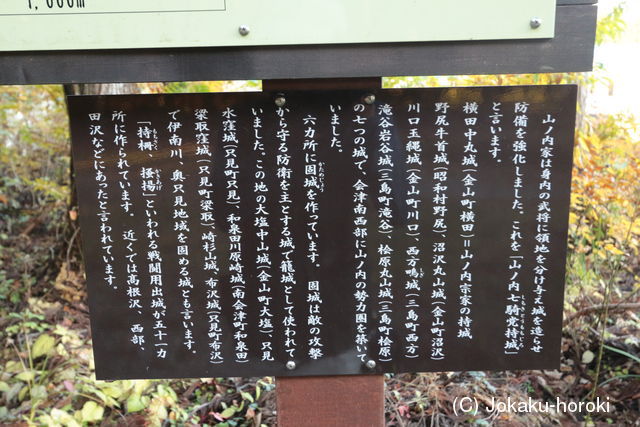 1,000m
山ノ内家は身内の武将に領地を分け与え城を造らせ
防備を強化しました。これを「山ノ内七騎党持城」
と言います。
横田中丸城（金山町横田）＝山ノ内宗家の持城
野尻牛首城（昭和村野尻）、沼沢丸山城（金山町沼沢）
川口玉縄城（金山町川口）、西方鴫城（三島町西方）
滝谷岩谷城（三島町滝谷）、桧原丸山城（三島町桧原）
の七つの城で、会津南西部に山ノ内の勢力圏を築いて
いました。
六カ所に固城を作っています。　固城は敵の攻撃
から守る防衛を主とする城で籠城として使われて
いました。この地の大塩中山城（金山町大塩）、只見
水窪城（只見町只見）、和泉田川原崎城（南会津町和泉田）
梁取窪城（只見町梁取）、崎杉山城、布沢城（只見町布沢）
で伊南川、奥只見地域を固める城とも言います。
「持柵、掻揚」といわれる戦闘用出城が五十一カ
所に作られています。　近くでは高根沢、西部、
田沢などにあったと言われています。
(C) Jokaku-horoki